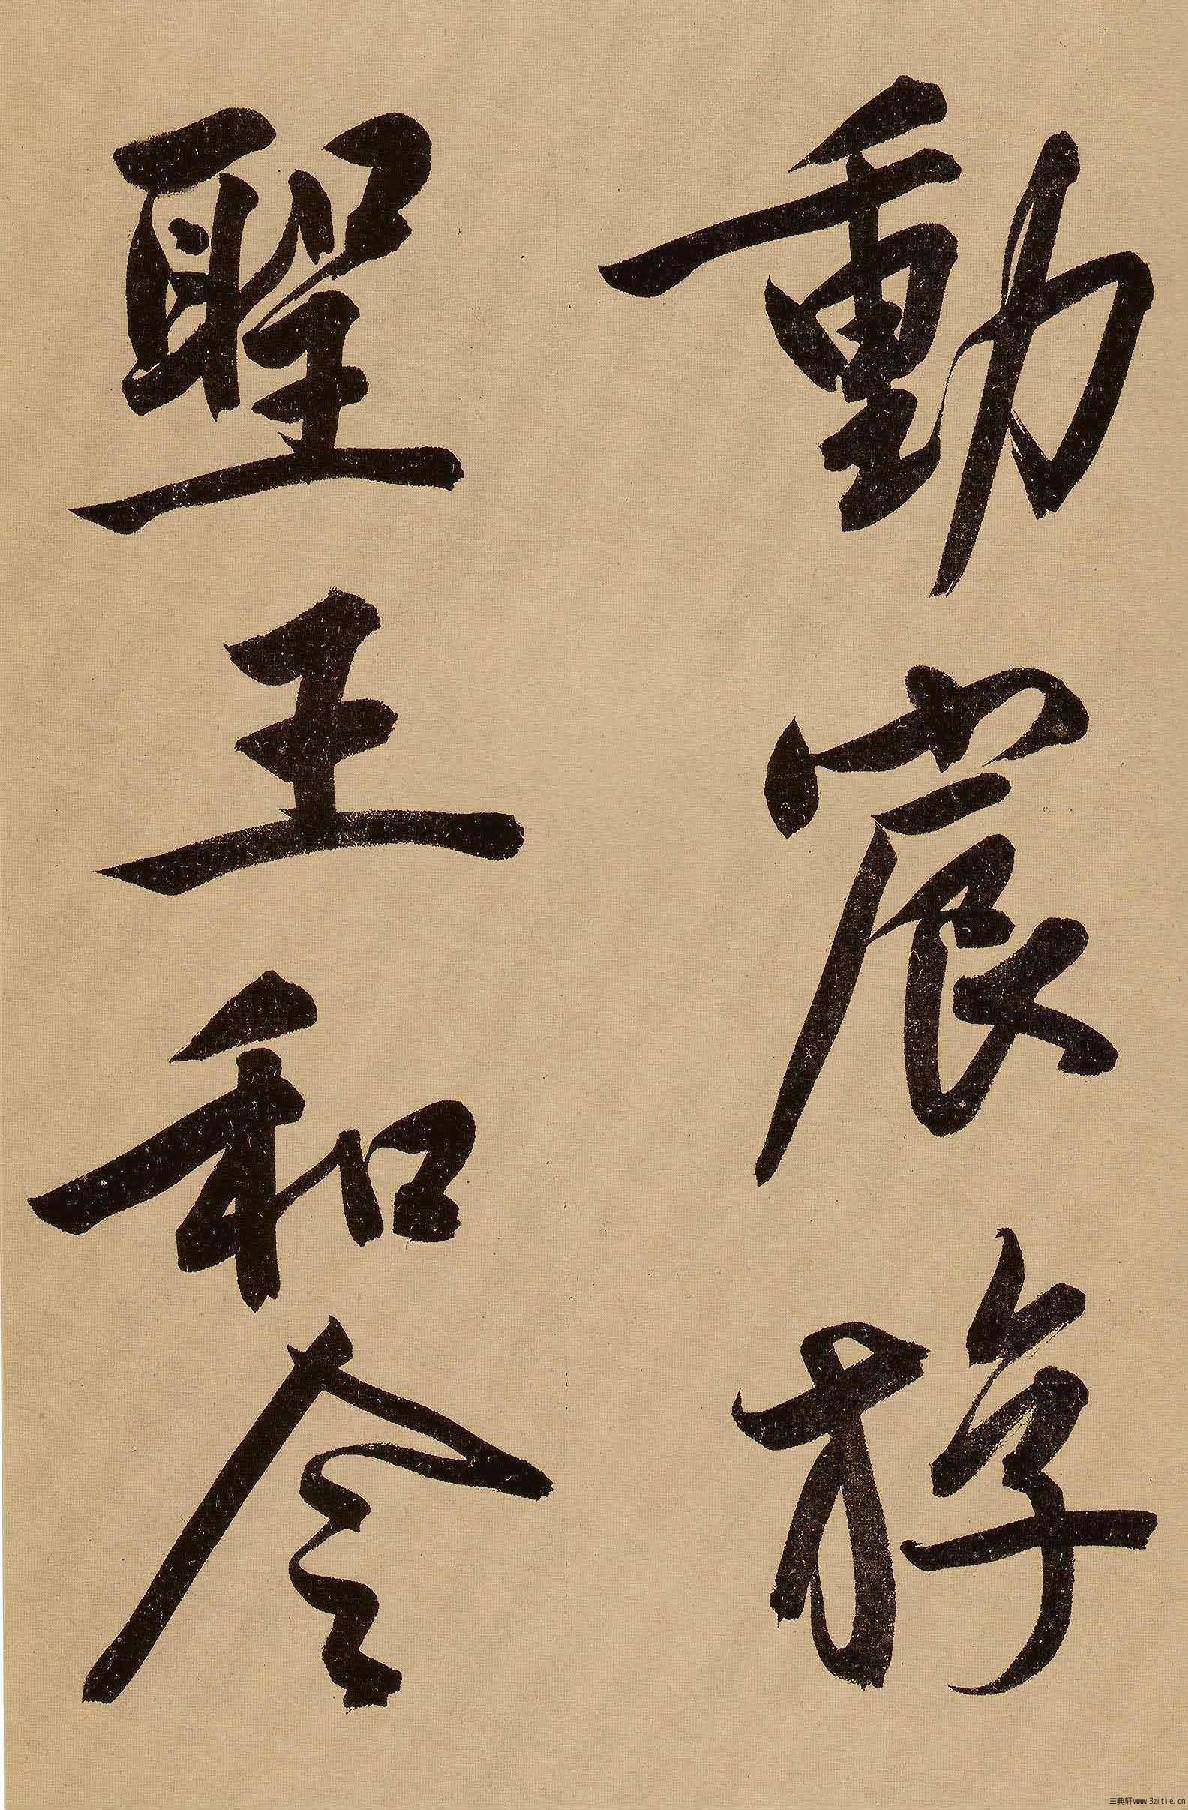 動宸游
聖王和令
三典轩www.3zitie.cn